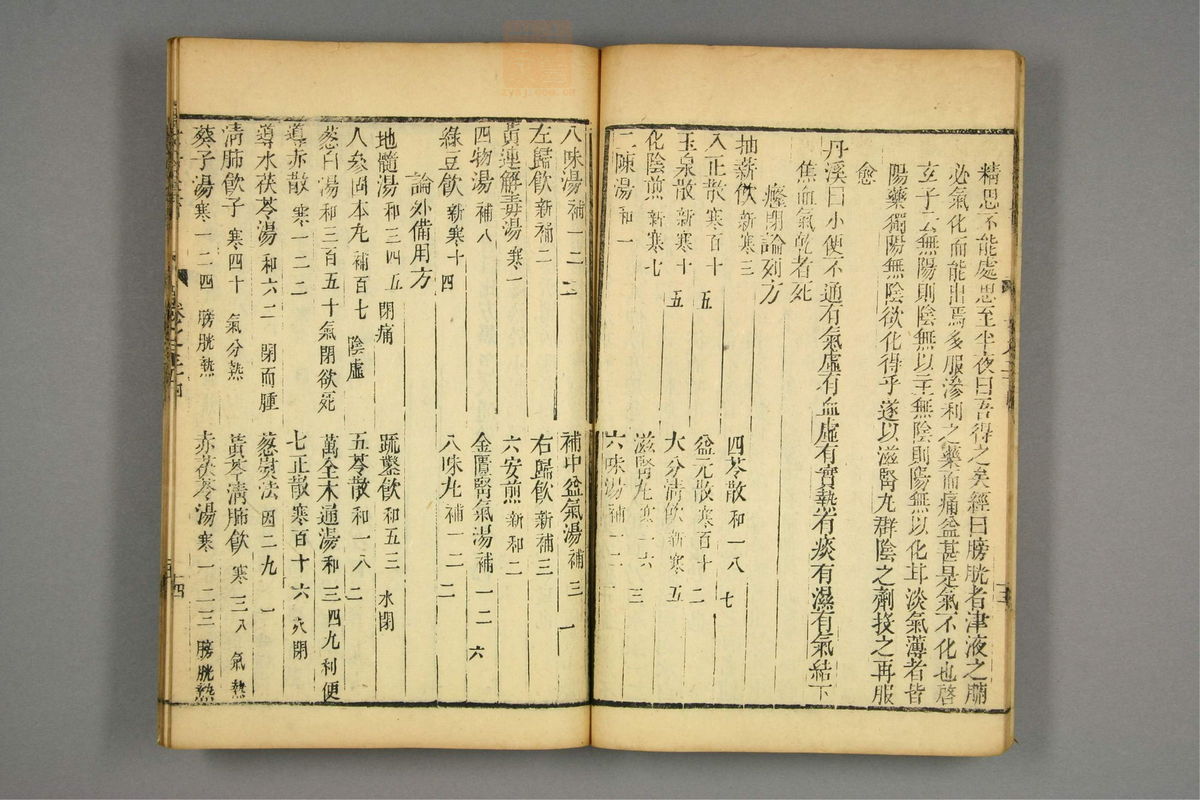 精思不能處思至半夜曰吾得之矣經曰膀胱者津液之腑
必氣化而能出焉多服滲利之藥而痛益甚是氣不化也啓
玄子云無陽則陰無以生無陰則陽無以化耳淡氣薄者皆
陽藥獨陽無陰欲化得乎遂以滋腎丸群陰之劑投之再服
愈
丹溪曰小便不通有氣虛有血虛有實熱有痰有濕有氣結下
焦血氣乾者死
癃閉論列方
抽薪飲 新寒三 四苓散 和一八七
八正散 寒百十五 益元散 寒百十二
玉泉散 新寒十五 大分清飲 新寒五
化陰煎 新寒七 滋腎丸 寒一六三
二陳湯 和一 六味湯 補一二一
八味湯 補一二二 補中益氣湯 補三一
左歸飲 新補二 右歸飲 新補三
黃連解毒湯 寒一 六安煎 新和二
四物湯 補八 金匱腎氣湯 補一二六
綠豆飲 新寒十四 八味丸 補一二二
論外備用方
地髓湯 和三四五 閉痛 疏鑿飲 和五三 水閉
人參固本丸 補百七 陰虛 五苓散 和一八二
葱白湯 和三百五十 氣閉欲死 萬全木通湯 和三四九 利便
導赤散 寒一二二 七正散 寒百十六 火閉
導水茯苓湯 和六二 閉而腫 葱熨法 因二九一
清肺飲子 寒四十 氣分熱 黃芩清肺飲 寒三八 氣熱
葵子湯 寒一二四 膀胱熱 赤茯苓湯 寒一二三 膀胱熱